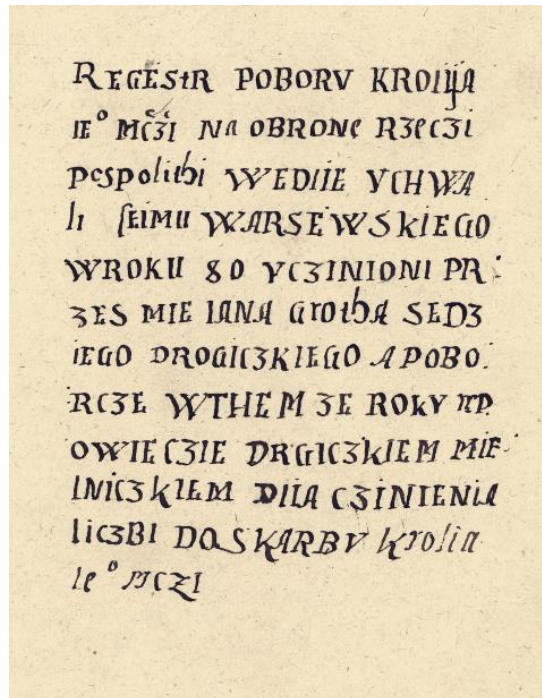 REGEStR POBORV KROIIJA
IE° MCZI Na OBRONE RZECZI
pospolithi WEDIIE VCHWA
li SEIMU WARSEWSKIEGO
WROKU 80 VCZINIONI PR
ZES MIE IANA Grotha SEDZ
IEGO DROGICZKIEGO A POBO
RCZE WTHEM ZE ROKV np
OWIECZIE DRGICZKIEM MIE
lNICZKIEM DIIA CZINIENIA
liCZBI DO SKARBV Krolia
Ie° MCZI